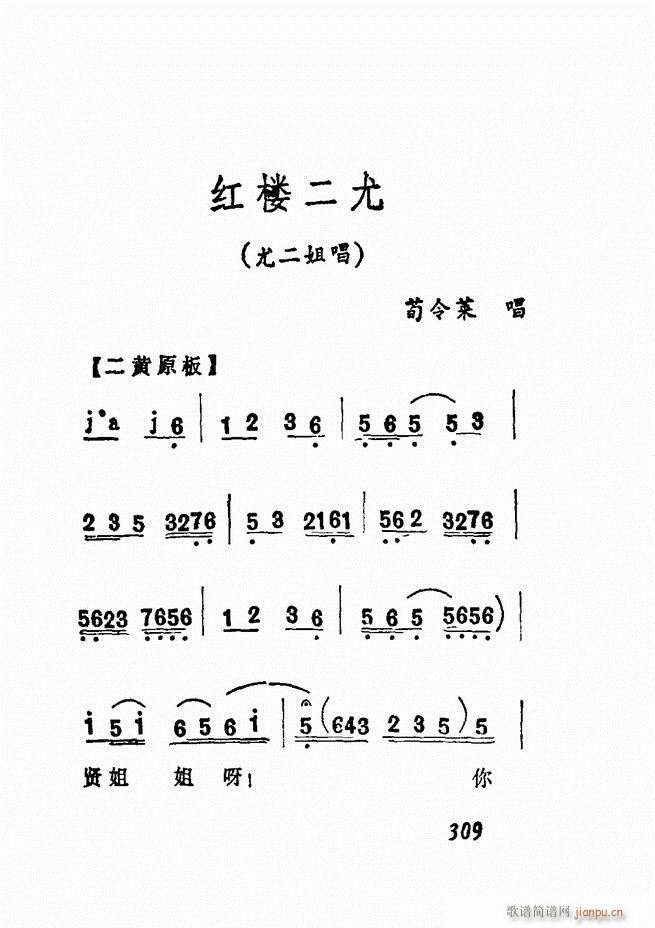 红楼二尤
(尤二姐唱)
荀令莱 唱
【二黄原板】
j•a j6 | 12 36 | 565 53 |
235 3276 | 53 2161 | 562 3276 |
5623 7656 | 12 36 | 565 5656) |
i5i 656i | 5(643 235)5 |
贤姐 姐呀! 你
309
歌谱简谱网 jianpu.cn